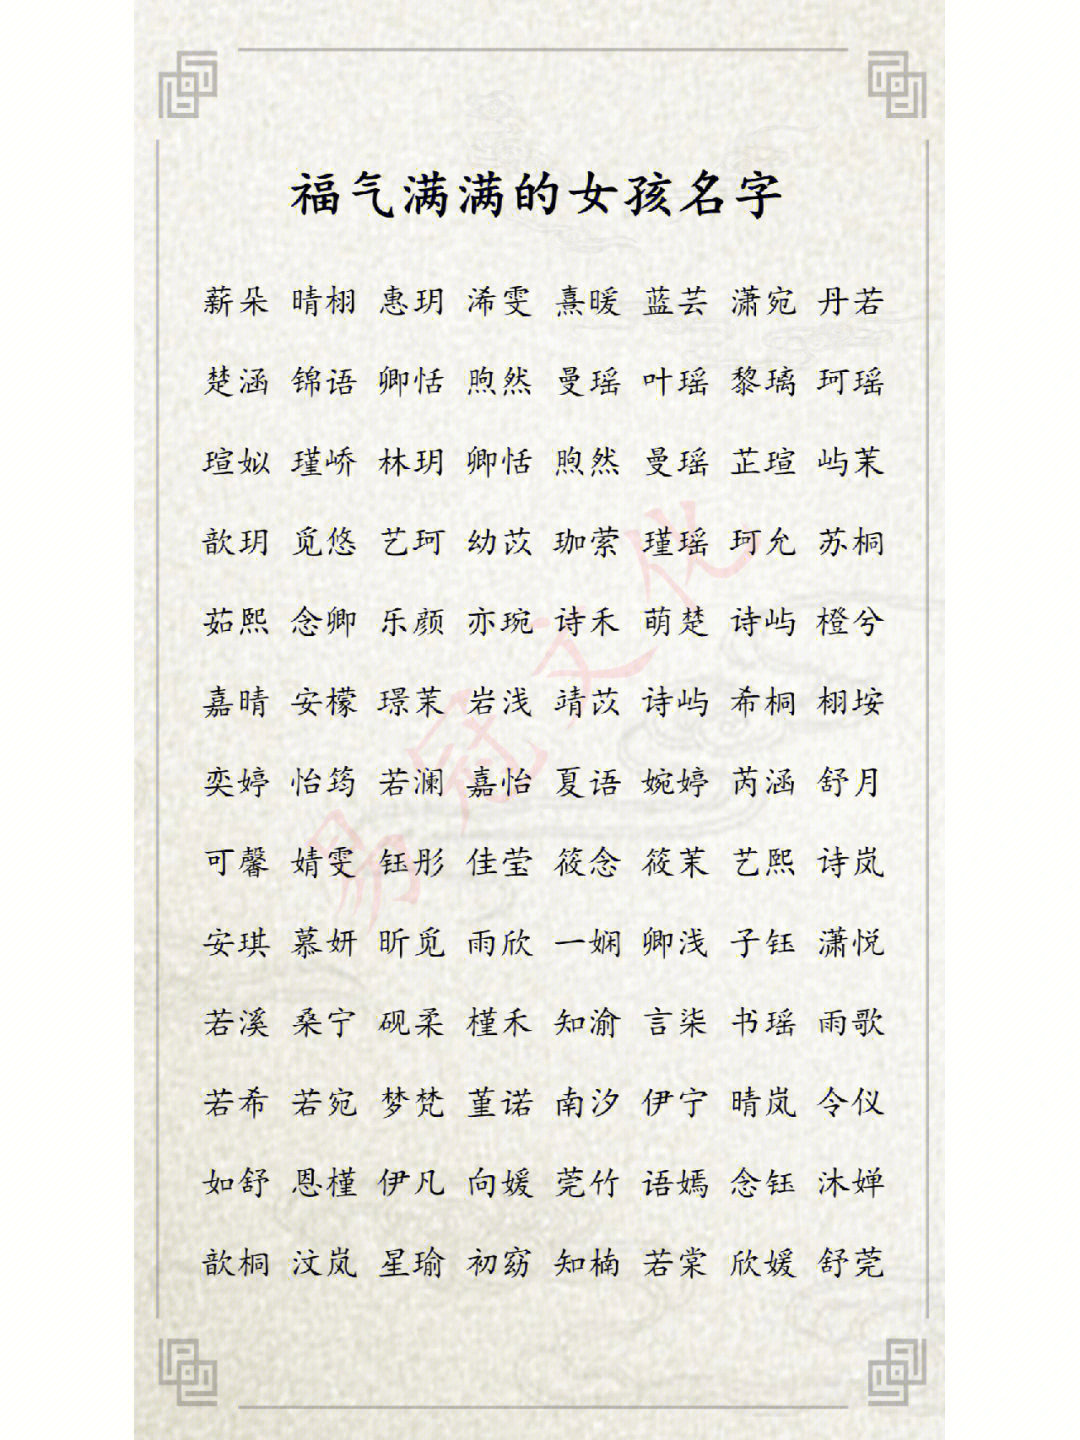 福气满满的女孩名字
薪朵 晴栩 惠玥 浠雯 熹暖 蓝芸 潇宛 丹若
楚涵 锦语 卿恬 煦然 曼瑶 叶瑶 黎璃 珂瑶
瑄姒 瑾峤 林玥 卿恬 煦然 曼瑶 芷瑄 屿茉
歆玥 觅悠 艺珂 幼苡 珈萦 瑾瑶 珂允 苏桐
茹熙 念卿 乐颜 亦琬 诗禾 萌楚 诗屿 橙兮
嘉晴 安檬 璟茉 岩浅 靖苡 诗屿 希桐 栩垵
奕婷 怡筠 若澜 嘉怡 夏语 婉婷 芮涵 舒月
可馨 婧雯 钰彤 佳莹 筱念 筱茉 艺熙 诗岚
安琪 慕妍 昕觅 雨欣 一娴 卿浅 子钰 潇悦
若溪 桑宁 砚柔 槿禾 知渝 言柒 书瑶 雨歌
若希 若宛 梦梵 堇诺 南汐 伊宁 晴岚 令仪
如舒 恩槿 伊凡 向媛 莞竹 语嫣 念钰 沐婵
歆桐 汶岚 星瑜 初窈 知楠 若棠 欣媛 舒莞
易冠文化